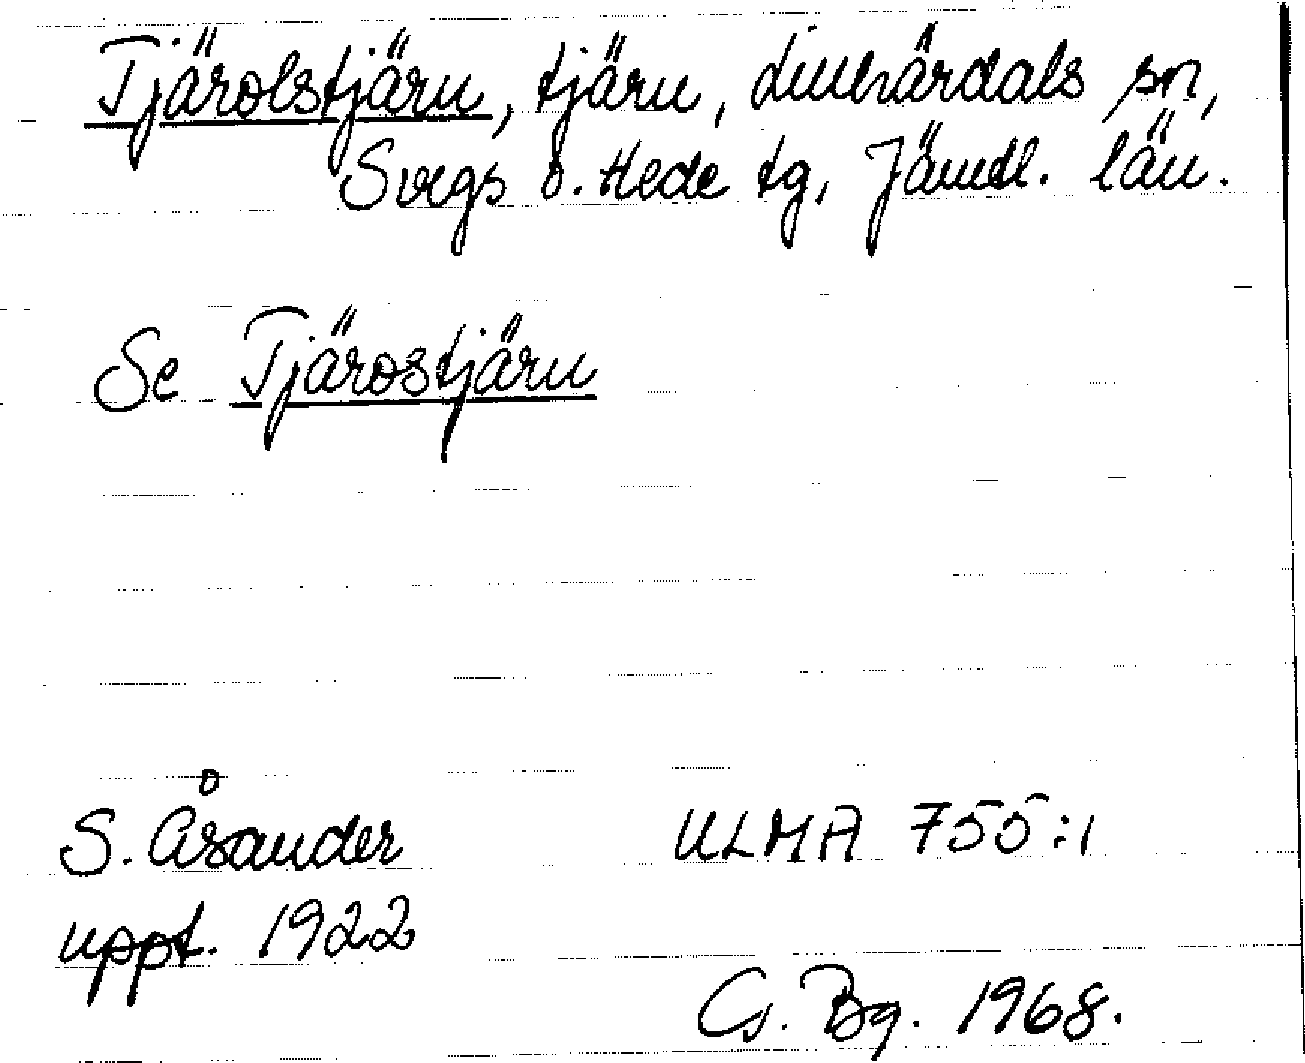 Tjärolstjärn, tjärn, Linsärdals sn,
Svegs o. Hede tg, Jämtl. län.
Se Tjärostjärn
S. Åsander
ULMA 755:1
uppt. 1922
G. Bg. 1968.